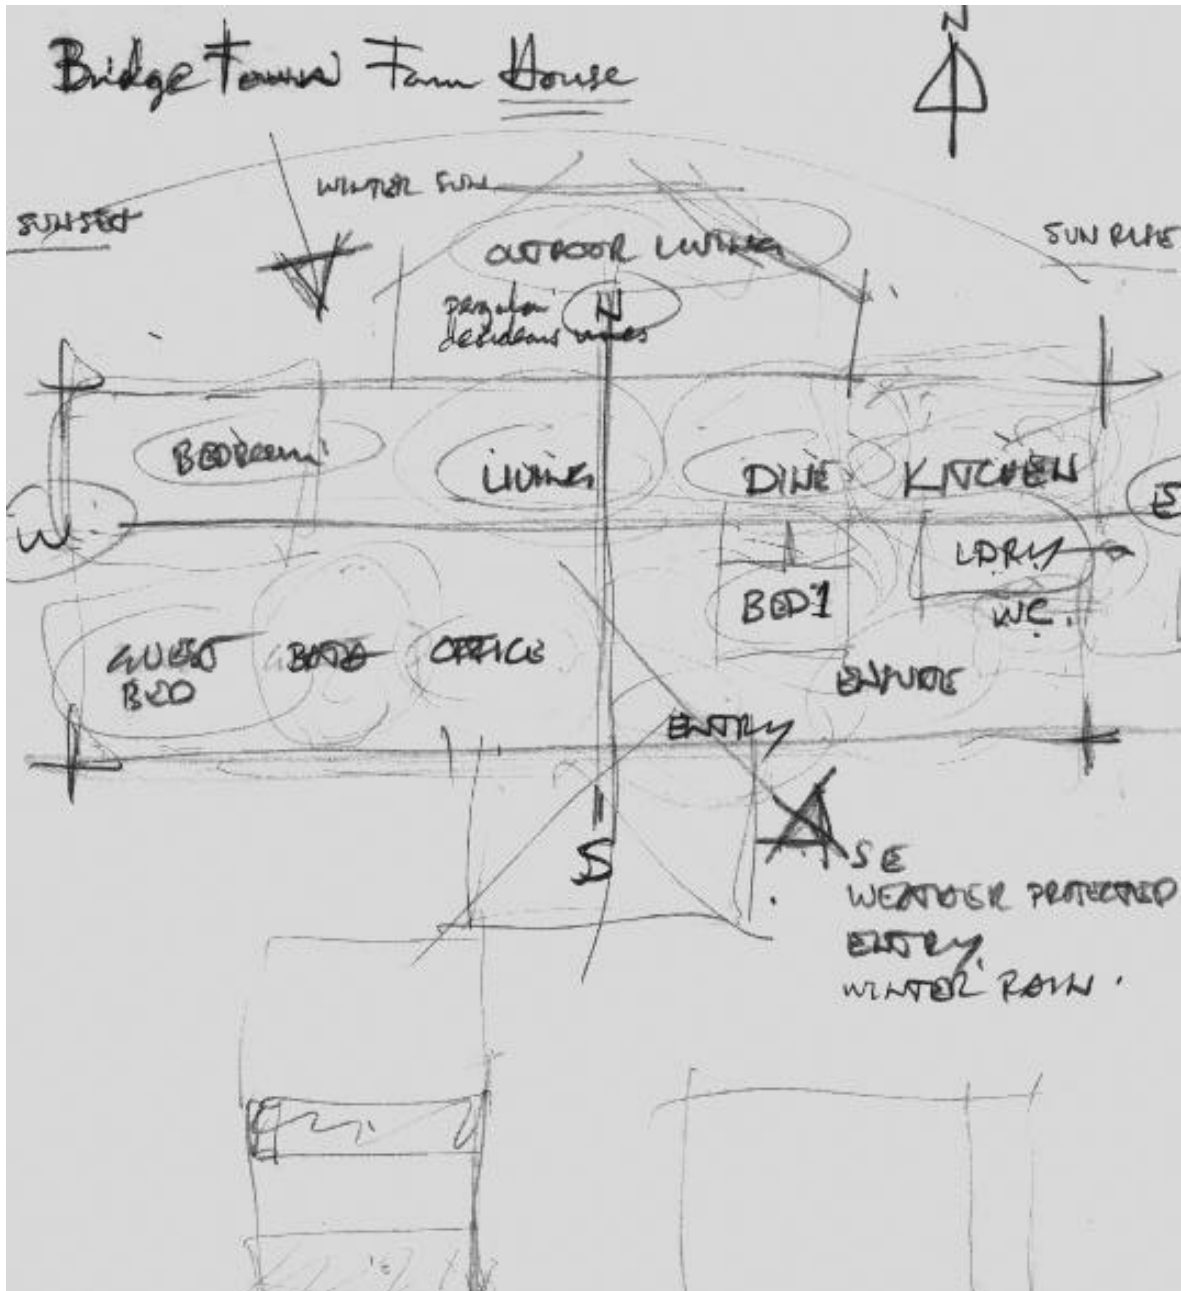 BridgeTown Farm House
N
WINTER SUN
SUNSET
SUN RISE
OUTDOOR LIVING
N
pergola
deciduous vines
BEDROOM
LIVING
DINE
KITCHEN
W
E
LDRY
WC.
BED 1
GUEST
BED
BATH
OFFICE
ENSUITE
ENTRY
S
SE
WEATHER PROTECTED
ENTRY
WINTER RAIN.